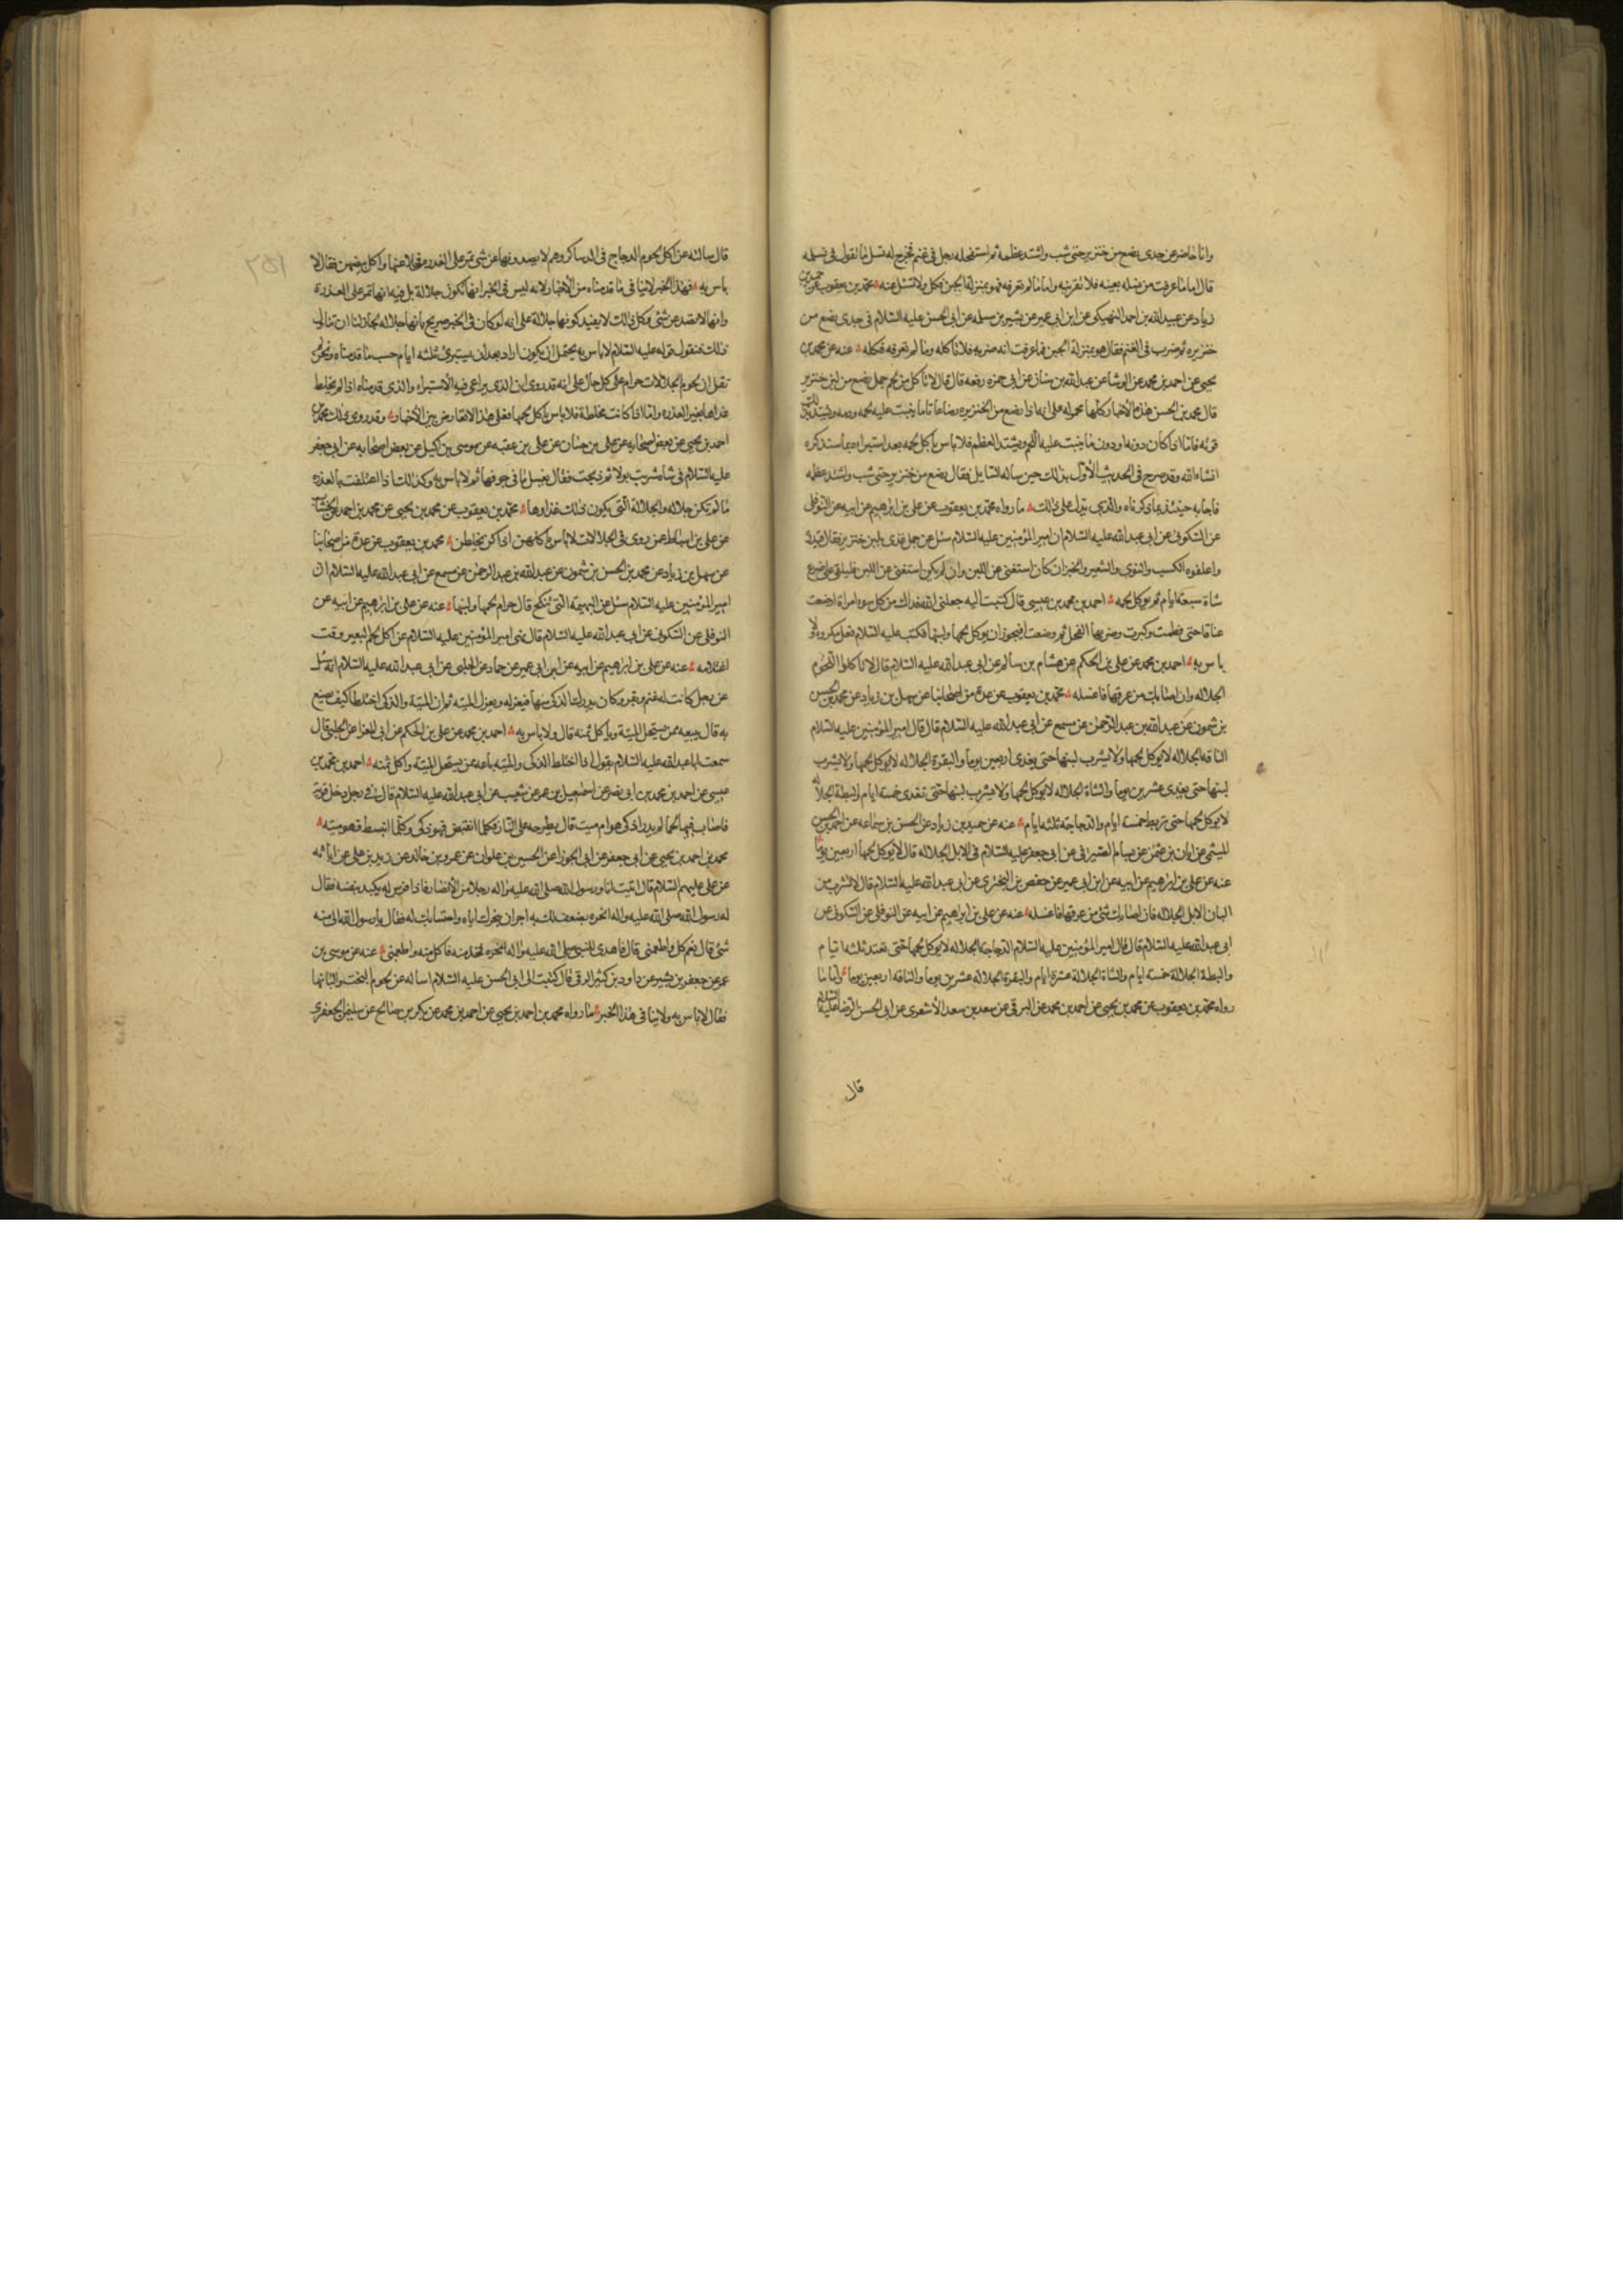 وانا حاضر عن جدى يرضع من خنزير حتى شب واشتد عظمه ثم استفحله رجل فى غنم فخرج له نسل ما تقول فى نسله
قال اما ما عرفت من نسله بعينه فلا تقربنه واما ما لم تعرفه فهو بمنزلة الجبن فكل ولا تسئل عنه محمد بن يعقوب عن حميد بن
زياد عن عبيد الله بن احمد النهيكى عن ابن ابى عمير عن بشير بن مسلمه عن ابى الحسن عليه السلام فى جدى يرضع من
خنزيره ثم ضرب فى الغنم فقال هو بمنزلة الجبن فما عرفت انه ضربه فلا تاكله وما لم تعرفه فكله عنه عن محمد بن
يحيى عن احمد بن محمد عن الوشا عن عبد الله بن سنان عن ابى حمزه رفعه قال قال لا تاكل من لحم حمل رضع من لبن خنزير
قال محمد بن الحسن هذه الاخبار كلها محموله على انه اذا رضع من الخنزيره رضاعا تاما ينبت عليه لحمه ودمه ويشتد بذلك
قوته فاما اذا كان دونه او دون ما ينبت عليه اللحم ويشتد العظم فلا باس باكل لحمه بعد استبراءه بما سنذكره
انشاء الله وقد صرح فى الحديث الاول بذلك حين ساله السايل فقال رضع من خنزير حتى شب واشتد عظمه
فاجابه حينئذ بما ذكرناه والذى يدل على ذلك ما رواه محمد بن يعقوب عن على بن ابرهيم عن ابيه عن النوفلى
عن السكونى عن ابى عبد الله عليه السلام ان امير المؤمنين عليه السلام سئل عن حمل غذى بلبن خنزير فقال قيدوه
واعلفوه الكسب والنوى والشعير والخبز ان كان استغنى عن اللبن وان لم يكن استغنى عن اللبن فليلقى على ضرع
شاة سبعة ايام ثم يوكل لحمه احمد بن محمد بن عيسى قال كتبت اليه جعلنى الله فداك من كل سوء امراة ارضعت
عناقا حتى فطمت وكبرت وضربها الفحل ثم وضعت افيجوز ان يوكل لحمها ولبنها فكتب عليه السلام فعل مكروه ولا
باس به احمد بن محمد عن على بن الحكم عن هشام بن سالم عن ابى عبد الله عليه السلام قال لا تاكلوا اللحوم
الجلاله وان اصابك من عرقها فاغسله محمد بن يعقوب عن عدة من اصحابنا عن سهل بن زياد عن محمد بن الحسن
بن شمون عن عبد الله بن عبد الرحمن عن مسمع عن ابى عبد الله عليه السلام قال قال امير المؤمنين عليه السلام
الناقه الجلاله لا يوكل لحمها ولا يشرب لبنها حتى يغذى اربعين يوما والبقرة الجلاله لا يوكل لحمها ولا يشرب
لبنها حتى يغذى عشرين يوما والشاة الجلاله لا يوكل لحمها ولا يشرب لبنها حتى تغذى خمسه ايام والبطة الجلاله
لا يوكل لحمها حتى تربط خمسه ايام والدجاجة ثلثه ايام عنه عن حميد بن زياد عن الحسن بن سماعه عن احمد بن الحسن
الميثمى عن ابان بن عثمن عن بسام الصيرفى عن ابى جعفر عليه السلام فى الابل الجلاله قال لا يوكل لحمها اربعين يوما
عنه عن على بن ابرهيم عن ابيه عن ابن ابى عمير عن حفص بن البخترى عن ابى عبد الله عليه السلام قال لا تشرب من
البان الابل الجلاله فان اصابك شئ من عرقها فاغسله عنه عن على بن ابراهيم عن ابيه عن النوفلى عن السكونى عن
ابى عبد الله عليه السلام قال قال امير المؤمنين عليه السلام الدجاجة الجلاله لا يوكل لحمها حتى تقتد ثلثه ايام
والبطة الجلالة خمسه ايام والشاة الجلالة عشرة ايام والبقرة الجلاله عشرين يوما والناقه اربعين يوما واما ما
رواه محمد بن يعقوب عن محمد بن يحيى عن احمد بن محمد عن البرقى عن سعد بن سعد الاشعرى عن ابى الحسن الرضا عليه السلام
قال
قال سالته عن اكل لحوم الدجاج فى الدساكر وهم لا يصدونها عن شئ تمر على العذره مخلا عنها واكل بيضهن فقال لا
باس به فهذا الخبر لا ينافى ما قدمناه من الاخبار لانه ليس فى الخبر انها تكون جلالة بل فيه انها تمر على العذرة
وانها لا تصد عن شئ وكل ذلك لا يفيد كونها جلالة على انه لو كان فى الخبر صريح بانها جلاله لجاز لنا ان نتاول
ذلك فنقول قوله عليه السلام لا باس به يحتمل ان يكون اراد بعد ان يستبرئ ثلثه ايام حسب ما قدمناه ونحن لم
نقل ان لحوم الجلالات حرام على كل حال على انه قد روى ان الذى يراعى فيه الاستبراء والذى قدمناه اذا لم يخلط
غذاها بغير العذره واما اذا كانت مخلطة فلا باس باكل لحمها فعلى هذا لا تعارض بين الاخبار وقد روى ذلك محمد بن
احمد بن يحيى عن بعض اصحابه عن على بن حسان عن على بن عقبه عن موسى بن اكيل عن بعض اصحابه عن ابى جعفر
عليه السلام فى شاه شربت بولا ثم ذبحت فقال يغسل ما فى جوفها ثم لا باس به وكذلك اذا اعتلفت بالعذره
ما لم تكن جلاله والجلالة التى يكون ذلك غذاوها محمد بن يعقوب عن محمد بن يحيى عن محمد بن احمد عن الخشاب
عن على بن اسباط عن روى فى الجلالات لا باس باكلهن اذا كن يخلطن محمد بن يعقوب عن عدة من اصحابنا
عن سهل بن زياد عن محمد بن الحسن بن شمون عن عبد الله بن عبد الرحمن عن مسمع عن ابى عبد الله عليه السلام ان
امير المؤمنين عليه السلام سئل عن البهيمه التى تنكح قال حرام لحمها ولبنها عنه عن على بن ابرهيم عن ابيه عن
النوفلى عن السكونى عن ابى عبد الله عليه السلام قال نهى امير المؤمنين عليه السلام عن اكل لحم البعير وقت
اغتلامه عنه عن على بن ابرهيم عن ابيه عن ابن ابى عمير عن حماد عن الحلبى عن ابى عبد الله عليه السلام انه سئل
عن رجل كانت له غنم وبقر وكان يدرك الذكى منها فيعزله ويعزل الميته ثم ان الميتة والذكى اختلطا كيف يصنع
به قال يبيعه ممن يستحل الميتة وياكل ثمنه قال ولا باس به احمد بن محمد عن على بن الحكم عن ابى المعزا عن الحلبى قال
سمعت ابا عبد الله عليه السلام يقول اذا اختلط الذكى والميته باعه ممن يستحل الميتة واكل ثمنه احمد بن محمد بن
عيسى عن احمد بن محمد بن ابى نصر عن اسمعيل بن عمر عن شعيب عن ابى عبد الله عليه السلام قال فى رجل دخل قرية
فاصاب فيها لحما لم يدر اذكى هو ام ميت قال يطرحه على النار فكلما انقبض فهو ذكى وكلما انبسط فهو ميته
محمد بن احمد بن يحيى عن ابى جعفر عن ابى الجوزا عن الحسين بن علوان عن عمرو بن خالد عن زيد بن على عن ابائه
عن على عليهم السلام قال اتيت انا ورسول الله صلى الله عليه واله رجلا من الانصار فاذا فرس له يكيد بنفسه فقال
له رسول الله صلى الله عليه واله انحره يضعف لك به اجران بنحرك اياه واحتسابك له فقال يا رسول الله الى منه
شئ قال نعم كل واطعمنى قال فاهدى للنبى صلى الله عليه واله فخذا منه فاكل منه واطعمنى عنه عن موسى بن
عمر عن جعفر بن بشير عن داود بن كثير الرقى قال كتبت الى ابى الحسن عليه السلام اساله عن لحوم البخت والبانها
فقال لا باس به ولا ينافى هذا الخبر ما رواه محمد بن احمد بن يحيى عن احمد بن محمد عن بكر بن صالح عن سليمن الجعفرى